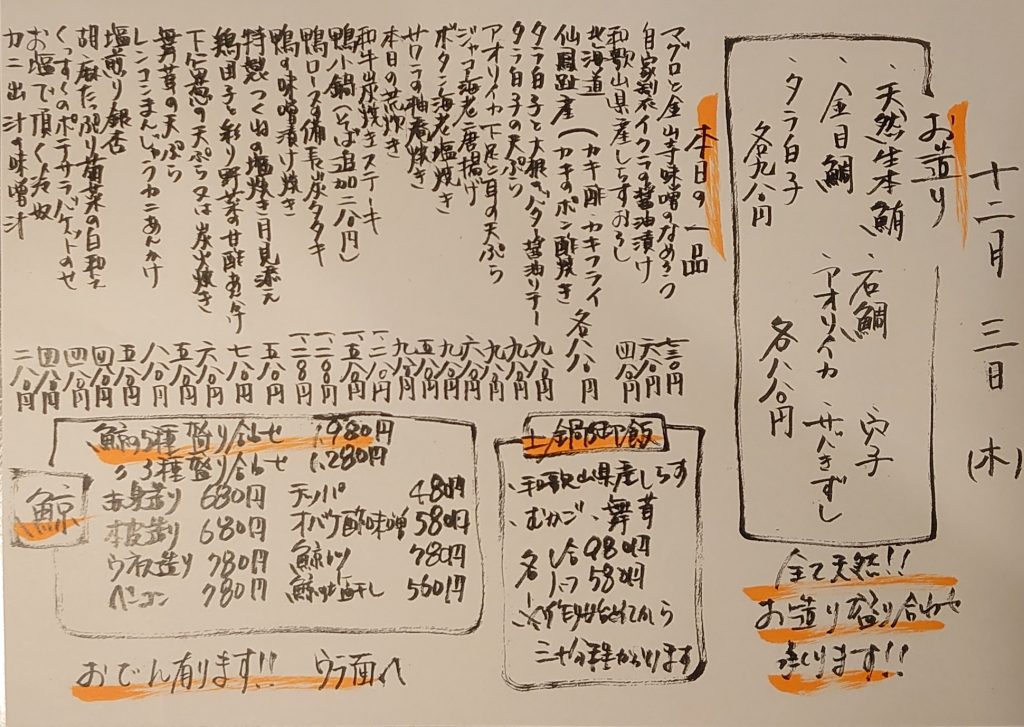 十二月 三日 (木)
お造り
・天然生本鮪 ・石鯛 ・穴子
・金目鯛 ・アオリイカ ・サバきずし
・タラ白子
各九八〇円 各八八〇円
全て天然!!
お造り盛り合わせ
承ります!!
本日の一品
マグロと金山寺味噌のなめろう 七三〇円
自家製イクラの醤油漬け 六八〇円
和歌山県産しらすおろし 四八〇円
北海道 カキ酢・カキフライ
仙鳳趾産 (カキのポン酢焼き 各八八〇円
タラ白子と大根のバター醤油ソテー 九八〇円
タラ白子の天ぷら 九八〇円
アオリイカ下足と耳の天ぷら 九八〇円
ジャコ海老唐揚げ 六八〇円
ボタン海老塩焼き 九八〇円
サワラの柚庵焼き 九八〇円
本日の荒炊き 五八〇円
和牛炭焼きステーキ 一、二八〇円
鴨小鍋(そば追加二八〇円) 一、五八〇円
鴨ロースの備長炭タタキ 一、二八〇円
鴨の味噌漬け焼き 一、二八〇円
特製つくねの塩焼き 月見添え 五八〇円
鶏団子と彩り野菜の甘酢あんかけ 七八〇円
下仁田葱の天ぷら又は炭火焼き 六八〇円
舞茸の天ぷら 五八〇円
レンコンまんじゅうカニあんかけ 八八〇円
塩煎り銀杏 五八〇円
胡麻たっぷり菊菜の白和え 四八〇円
くっすくのポテサラバゲットのせ 四八〇円
お塩で頂く冷奴 四八〇円
カニ出汁の味噌汁 二八〇円
土鍋御飯
・和歌山県産しらす
・むかご ・舞茸
各 一合 980円
ハーフ 580円
三十分程かかります
鯨
鯨の5種盛り合わせ 1,980円
〃 3種盛り合わせ 1,280円
赤身造り 680円 テッパ 480円
本皮造り 680円 オバケ酢味噌 580円
ウネス造り 780円 鯨カツ 780円
ベーコン 780円 鯨の塩干し 560円
おでん有ります!! ウラ面へ